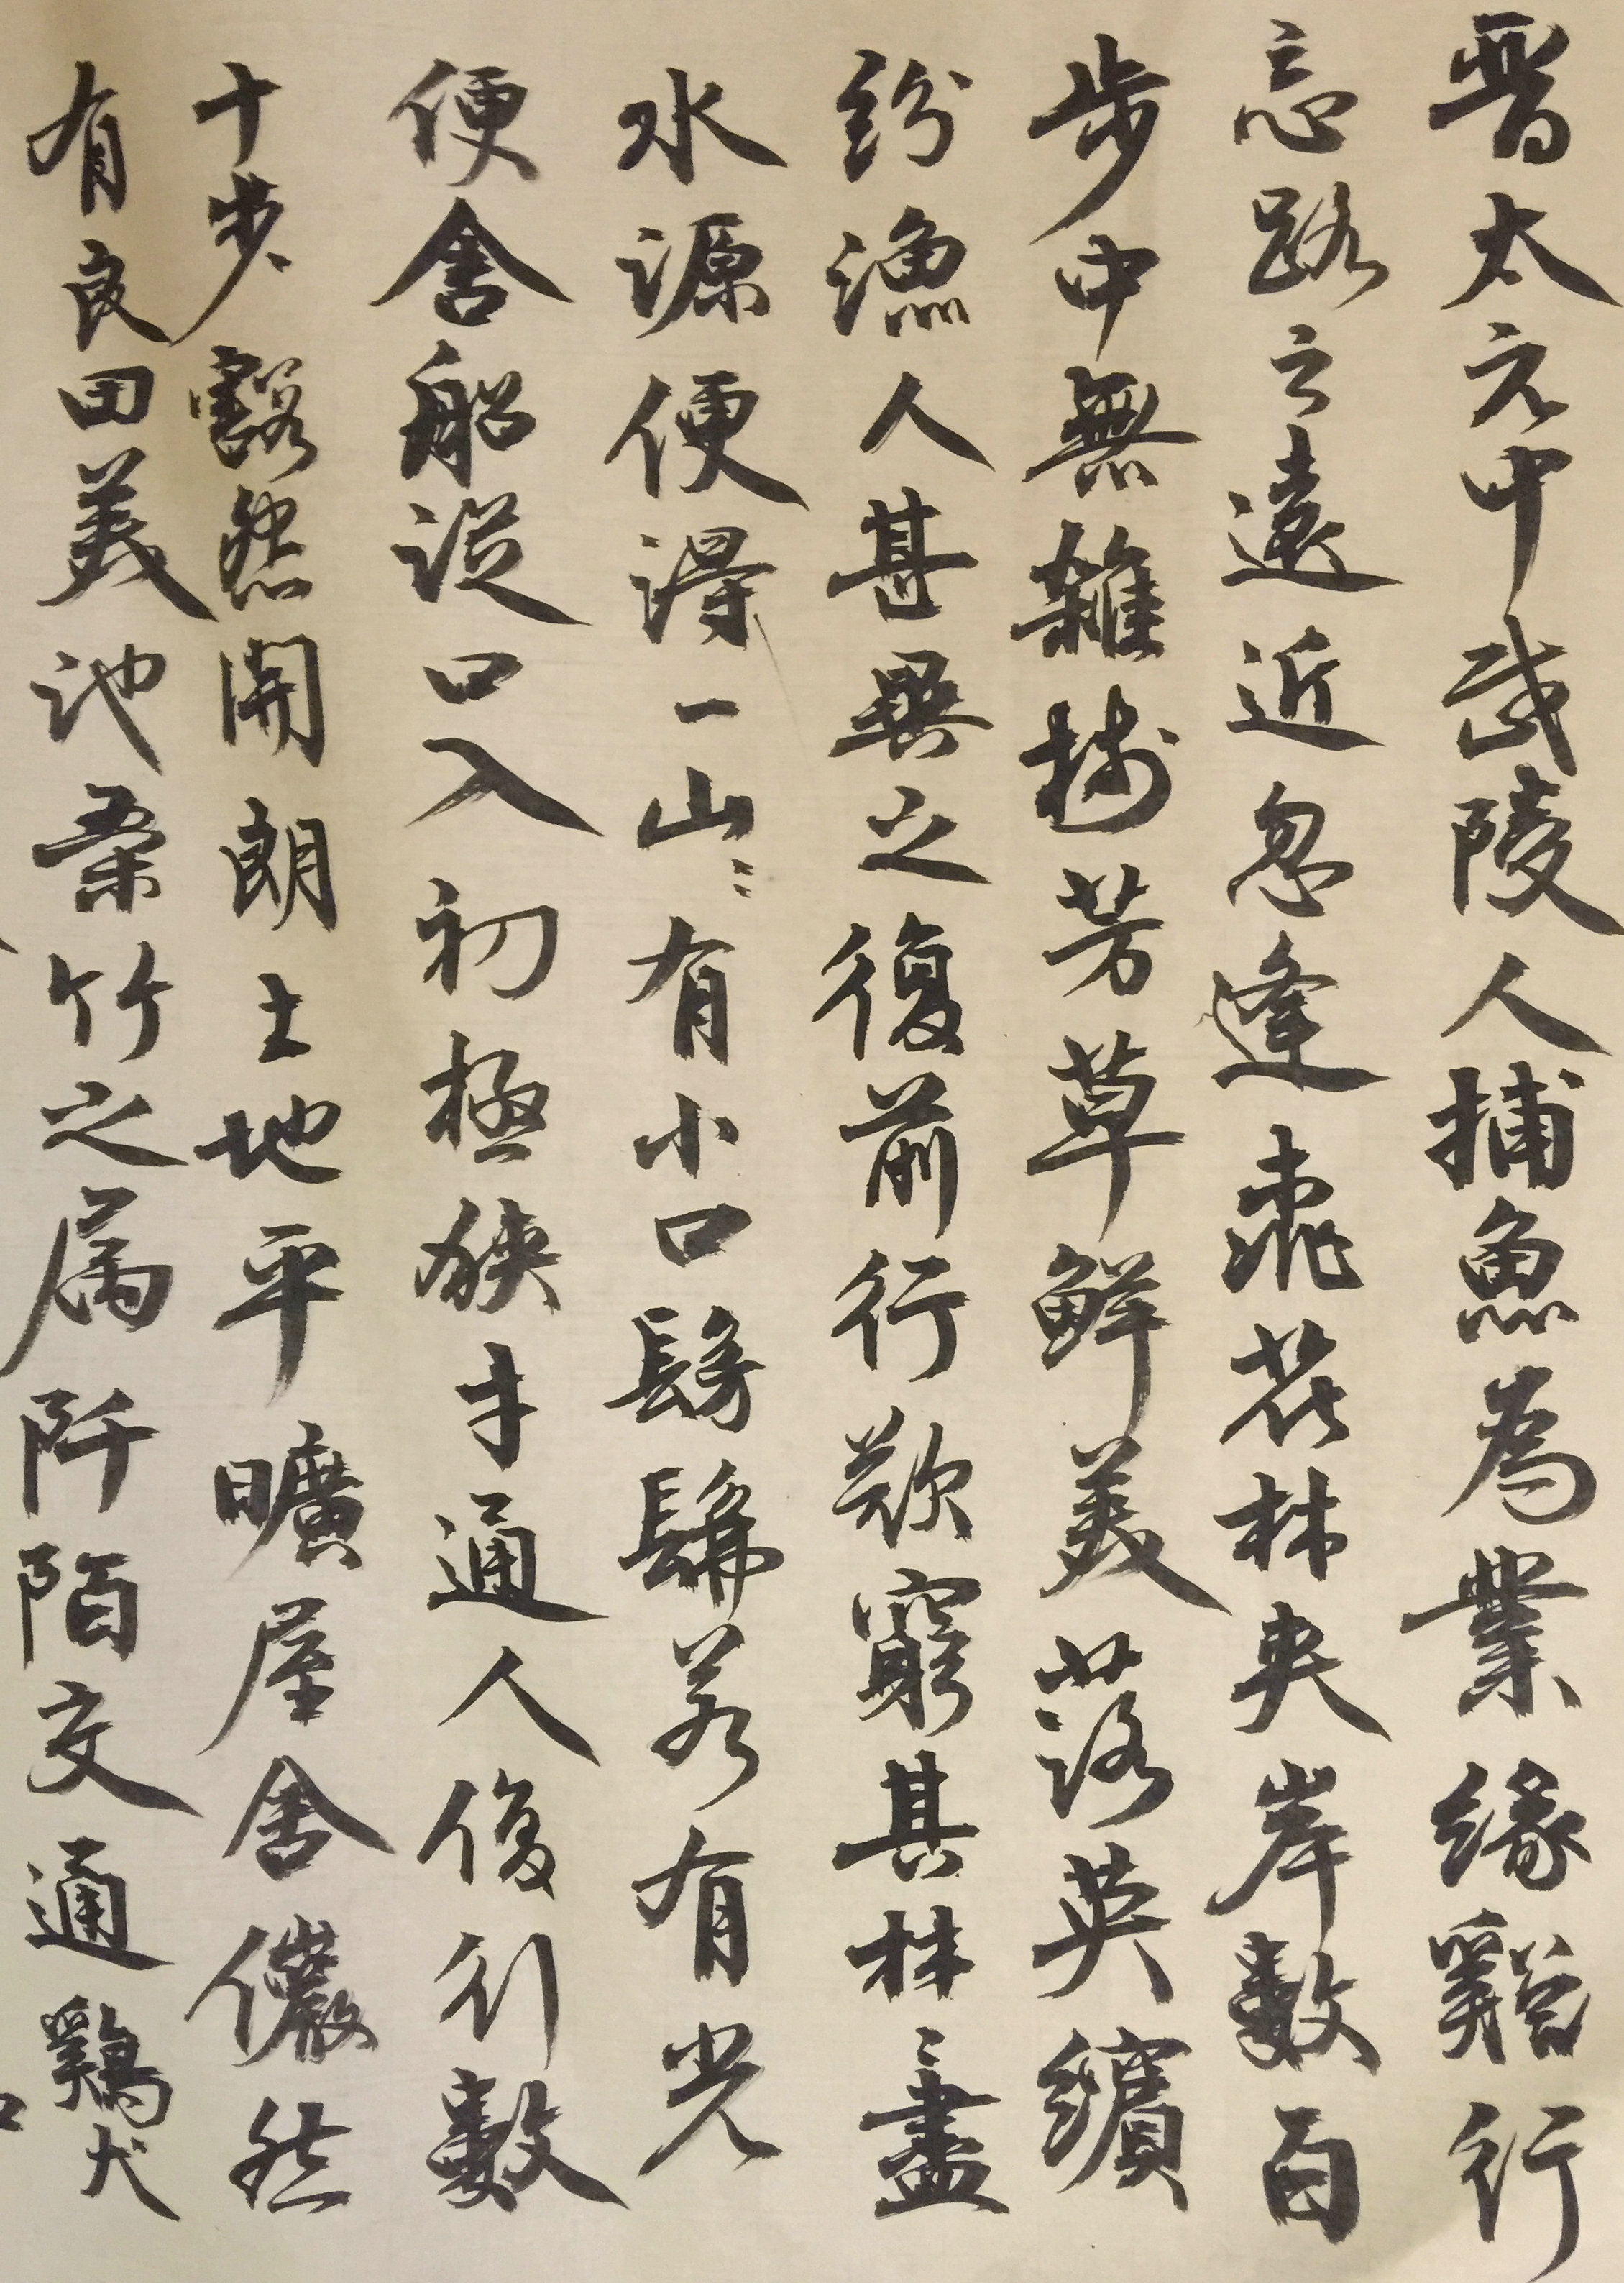 晉太元中武陵人捕魚為業緣谿行
忘路之遠近忽逢桃花林夾岸數百
步中無雜樹芳草鮮美落英繽
紛漁人甚異之復前行欲窮其林〻盡
水源便得一山〻有小口髣髴若有光
便舍船從口入初極狹才通人復行數
十步豁然開朗土地平曠屋舍儼然
有良田美池桑竹之属阡陌交通鷄犬